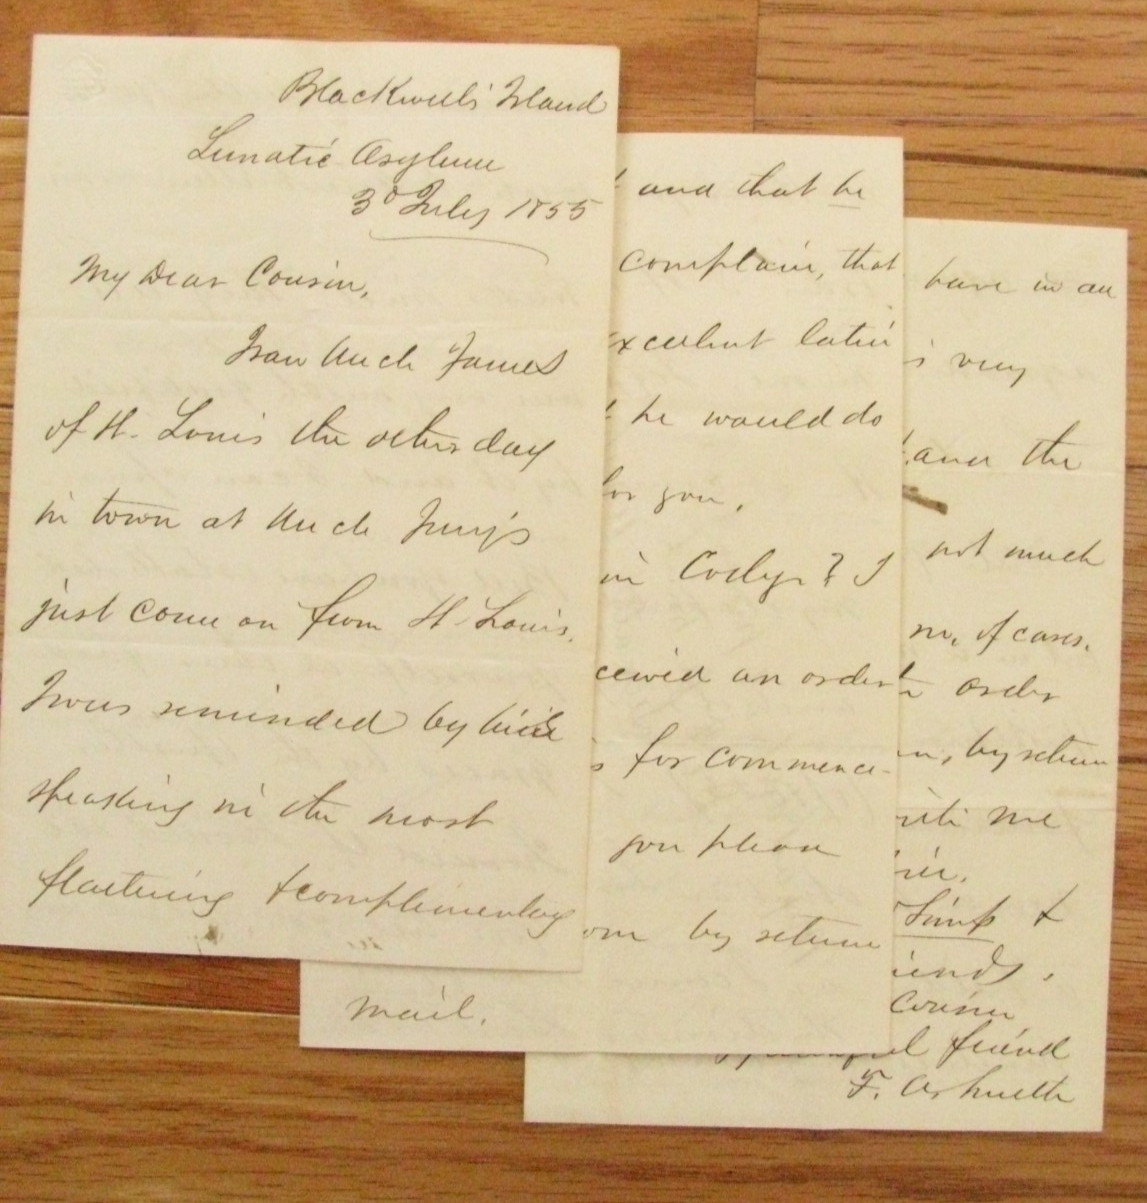 Blackwells' Island
Lunatic Asylum
3d July 1855
My Dear Cousin,
I saw Uncle James
of St. Louis the other day
in town at Uncle
just come on from St. Louis.
I was reminded by his
speaking in the most
flattering & complimentary
and that he
complain, that
excellent latin
he would do
for you.
in ? I
ceived an order
for commence-
you please
by return
mail.
have in an
very
and the
not much
of cases.
order
by return
me
&
Cousin
friend
F.